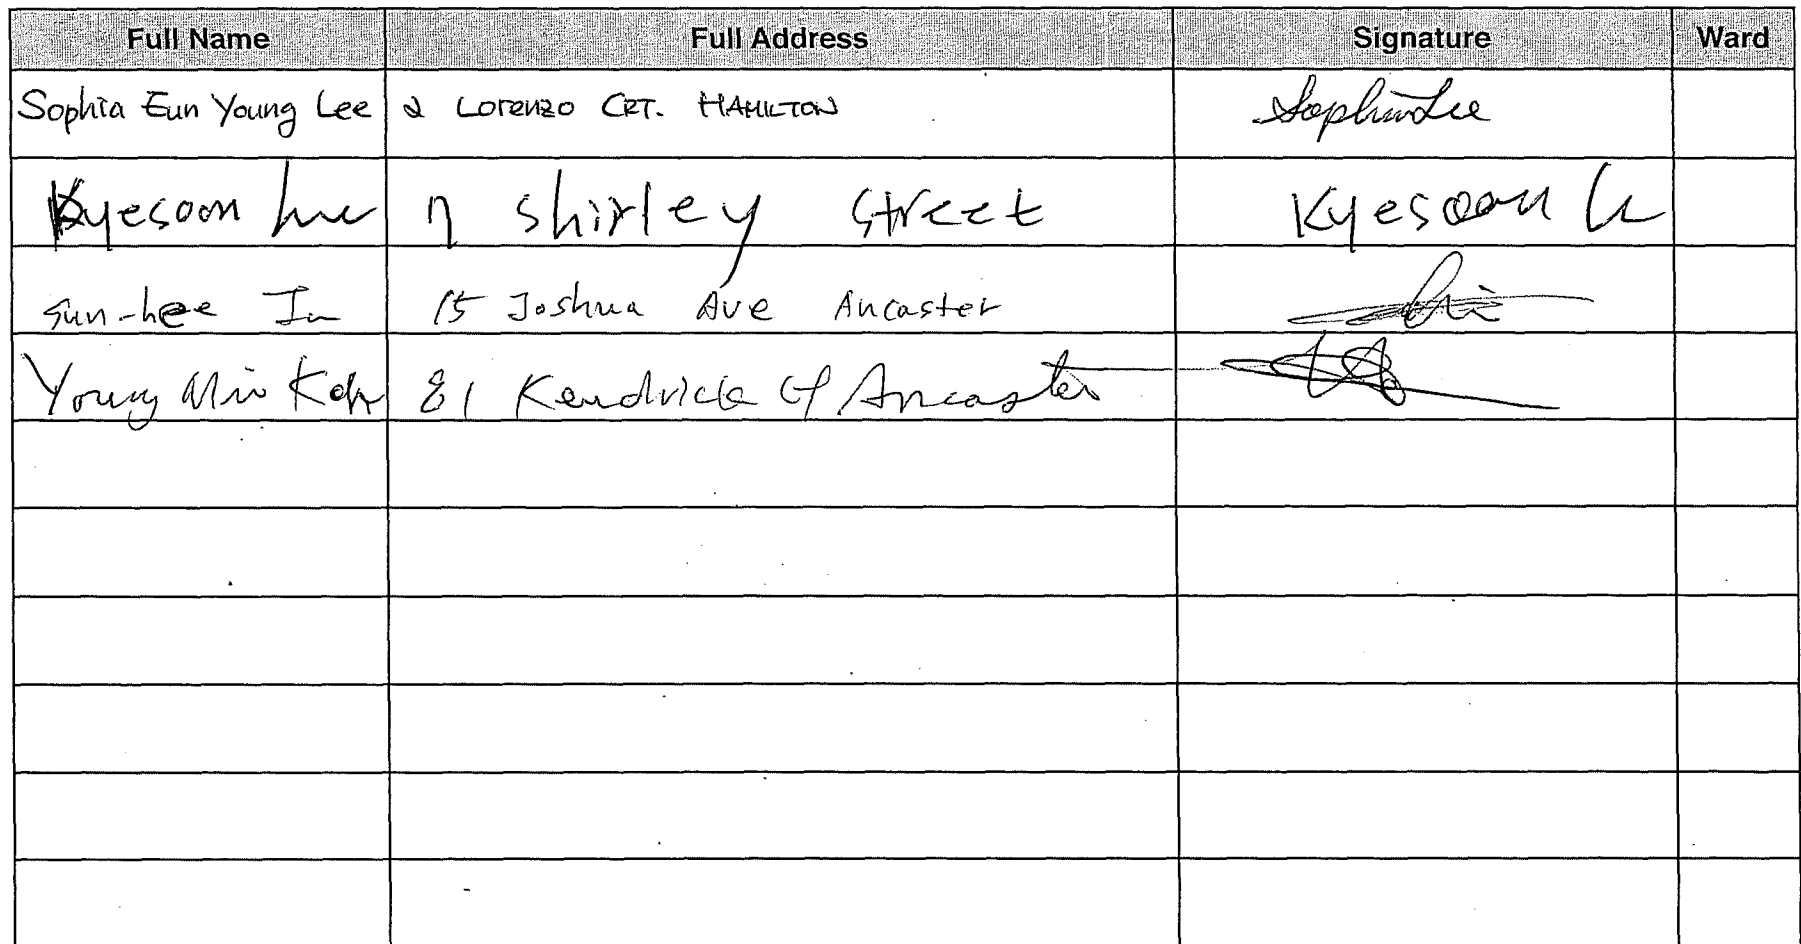 Full Name Full Address Signature Ward
Sophia Eun Young Lee 2 LORENZO CRT. HAMILTON Sophia Lee
Kyesoon 7 shirley street Kyesoon
sun-hee In 15 Joshua Ave Ancaster
Young Min Koh 81 Kendrick Ct Ancaster